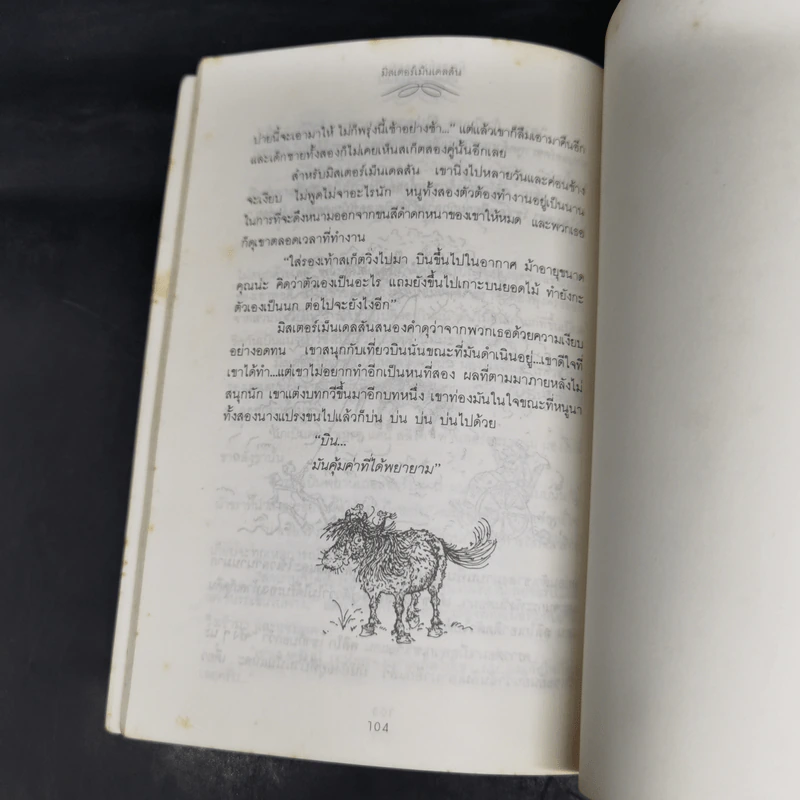 มิสเตอร์เม็นเดลสัน
บ่ายนี้จะเอามาให้ ไม่ก็พรุ่งนี้เช้าอย่างช้า...” แต่แล้วเขาก็ลืมเอามาคืนอีก
และเด็กชายทั้งสองก็ไม่เคยเห็นสเก็ตสองคู่นั้นอีกเลย
สำหรับมิสเตอร์เม็นเดลสัน เขานิ่งไปหลายวันและค่อนข้าง
จะเงียบ ไม่พูดไม่จาอะไรนัก หนูทั้งสองตัวต้องทำงานอยู่เป็นนาน
ในการที่จะดึงหนามออกจากขนสีดำดกหนาของเขาให้หมด และพวกเธอ
ก็ดุเขาตลอดเวลาที่ทำงาน
“ใส่รองเท้าสเก็ตวิ่งไปมา บินขึ้นไปในอากาศ ม้าอายุขนาด
คุณน่ะ คิดว่าตัวเองเป็นอะไร แถมยังขึ้นไปเกาะบนยอดไม้ ทำยังกะ
ตัวเองเป็นนก ต่อไปจะยังไงอีก”
มิสเตอร์เม็นเดลสันสนองคำดุว่าจากพวกเธอด้วยความเงียบ
อย่างอดทน เขาสนุกกับเที่ยวบินนั่นขณะที่มันดำเนินอยู่...เขาดีใจที่
เขาได้ทำ...แต่เขาไม่อยากทำอีกเป็นหนที่สอง ผลที่ตามมาภายหลังไม่
สนุกนัก เขาแต่งบทกวีขึ้นมาอีกบทหนึ่ง เขาท่องมันในใจขณะที่หนูนา
ทั้งสองนางแปรงขนไปแล้วก็บ่น บ่น บ่น บ่นไปด้วย
“บิน...
มันคุ้มค่าที่ได้พยายาม”
104